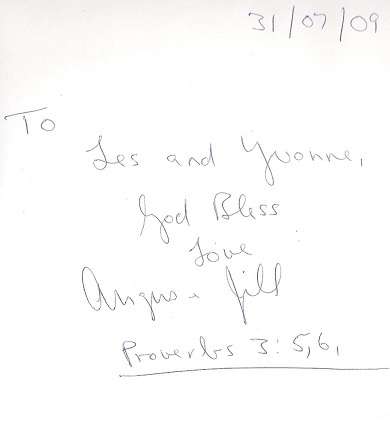 31/07/09
To
Les and Yvonne,
God Bless
Love
Angus & Jill
Proverbs 3:5,6,